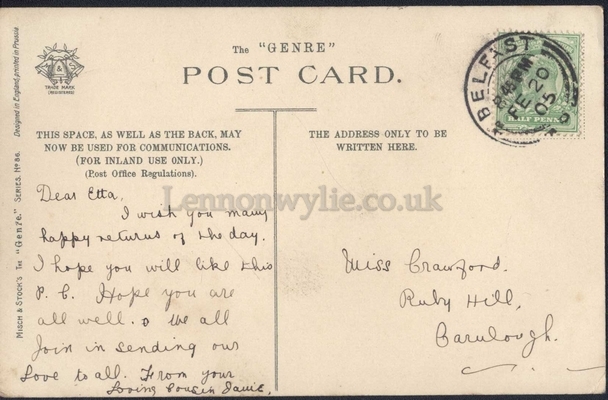 The "GENRE"
POST CARD.
TRADE MARK
(REGISTERED)
M & S
MISCH & STOCK'S THE "Genre." SERIES. No 86. Designed in England, printed in Prussia
THIS SPACE, AS WELL AS THE BACK, MAY
NOW BE USED FOR COMMUNICATIONS.
(FOR INLAND USE ONLY.)
(Post Office Regulations).
THE ADDRESS ONLY TO BE
WRITTEN HERE.
BELFAST
FE 20
05
HALF PENNY
Lennonwylie.co.uk
Dear Etta,
I wish you many
happy returns of the day.
I hope you will like this
P. C. Hope you are
all well. We all
Join in sending our
Love to all. From your
Loving Cousin
Miss Crawford.
Ruby Hill,
Carnlough.